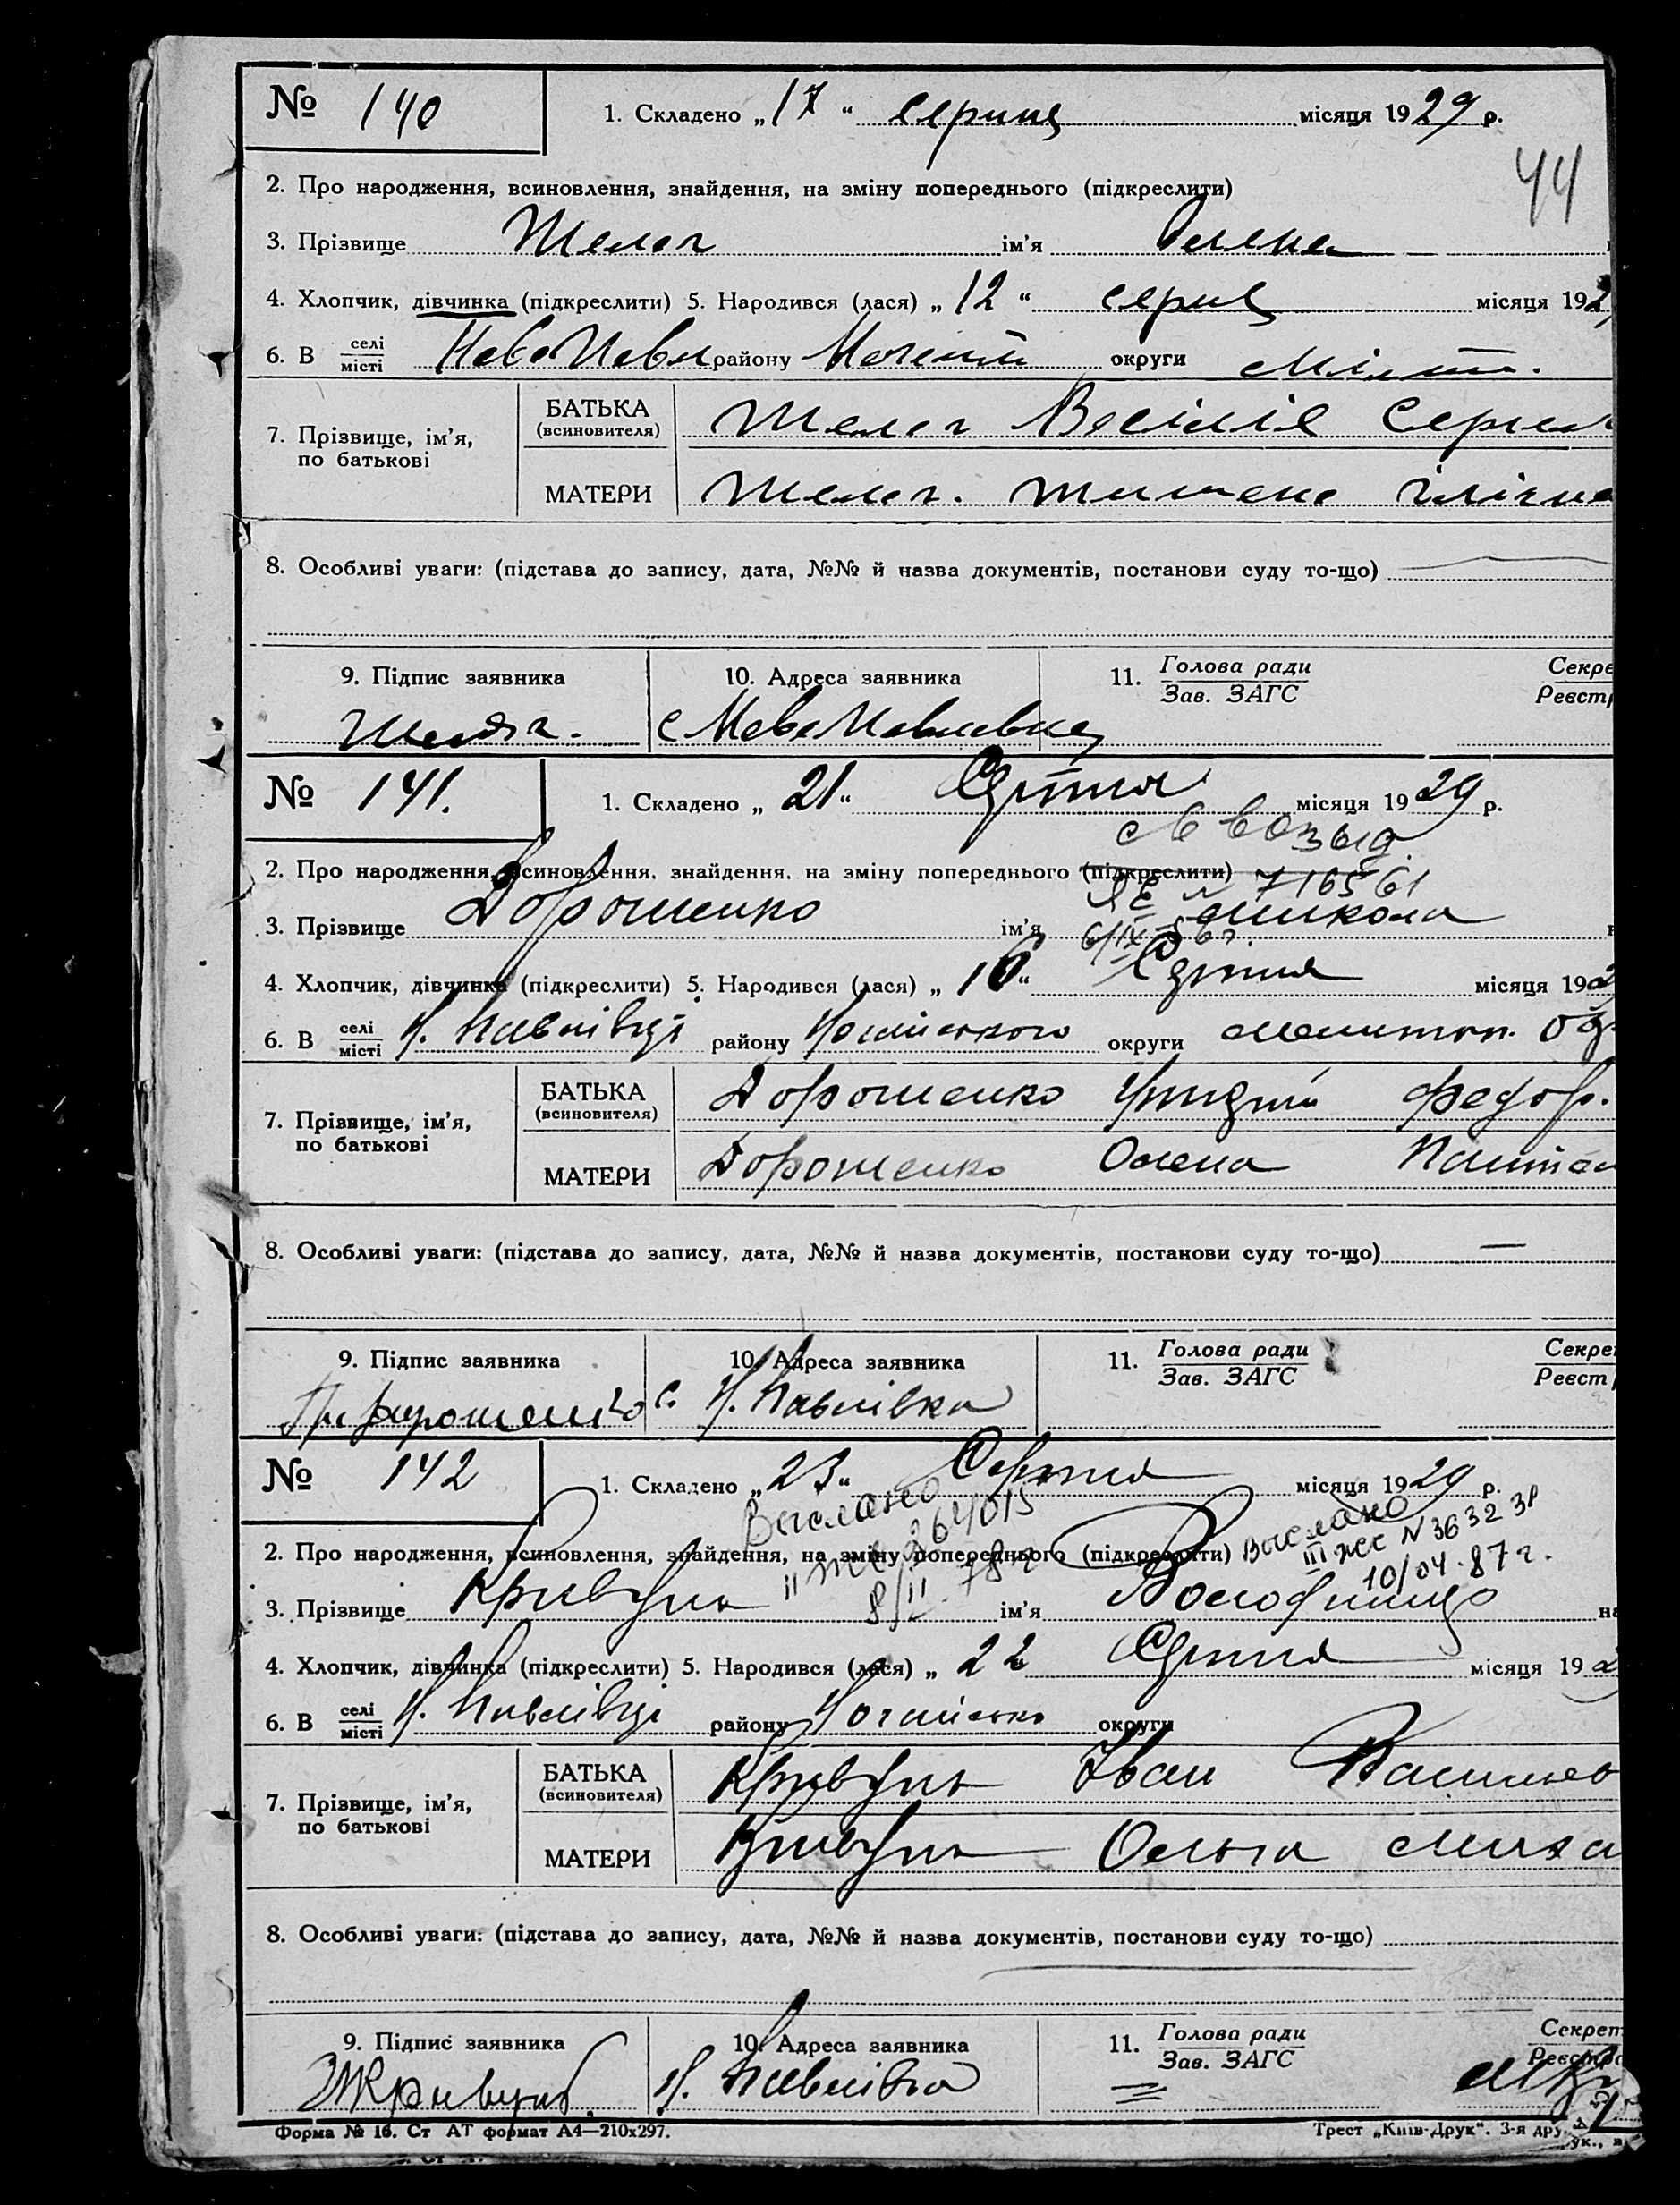 № 140 1. Складено „17“ серпня місяця 1929 р.
44
2. Про народження, всиновлення, знайдення, на зміну попереднього (підкреслити)
3. Прізвище Шелег ім'я Олена
4. Хлопчик, дівчинка (підкреслити) 5. Народився (лася) „12“ серпц місяця 192
6. В селі/місті НовоПавл району округи
7. Прізвище, ім'я, по батькові
БАТЬКА (всиновителя) Шелег Васілій Сергі
МАТЕРИ Шелег.
8. Особливі уваги: (підстава до запису, дата, №№ й назва документів, постанови суду то-що)
9. Підпис заявника 10. Адреса заявника 11. Голова ради / Зав. ЗАГС Секре / Реєстр
Шелег. с НовоПавлівка
№ 141. 1. Складено „21“ Серпня місяця 1929 р.
2. Про народження, всиновлення, знайдення, на зміну попереднього (підкреслити)
ЯЕ № 716561
3. Прізвище Дорошенко ім'я Микола
6/IX-56г.
4. Хлопчик, дівчинка (підкреслити) 5. Народився (лася) „16“ Серпня місяця 192
6. В селі/місті Н. Павлівці району Ногайського округи Мелитоп. Ок
7. Прізвище, ім'я, по батькові
БАТЬКА (всиновителя) Дорошенко Федор.
МАТЕРИ Дорошенко Олена
8. Особливі уваги: (підстава до запису, дата, №№ й назва документів, постанови суду то-що) —
9. Підпис заявника 10. Адреса заявника 11. Голова ради / Зав. ЗАГС Секре / Реєстр
Дорошенко с. Н. Павлівка
№ 142 1. Складено „23“ Серпня місяця 1929 р.
Выслано Выслано
II ЖС 264015 III ЖС N 363231
2. Про народження, всиновлення, знайдення, на зміну попереднього (підкреслити)
8/II-78г 10/04-87г.
3. Прізвище Кривуль ім'я Володимир на
4. Хлопчик, дівчинка (підкреслити) 5. Народився (лася) „22 Серпня місяця 192
6. В селі/місті Н. Павлівці району Ногайсько округи
7. Прізвище, ім'я, по батькові
БАТЬКА (всиновителя) Кривуль Іван Васильов
МАТЕРИ Кривуль Ольга Миха
8. Особливі уваги: (підстава до запису, дата, №№ й назва документів, постанови суду то-що)
9. Підпис заявника 10. Адреса заявника 11. Голова ради / Зав. ЗАГС Секрет / Реєстра
Кривуль Н. Павлівка
Форма № 16. Ст АТ формат А4—210x297. Трест „Київ-Друк“. 3-я дру